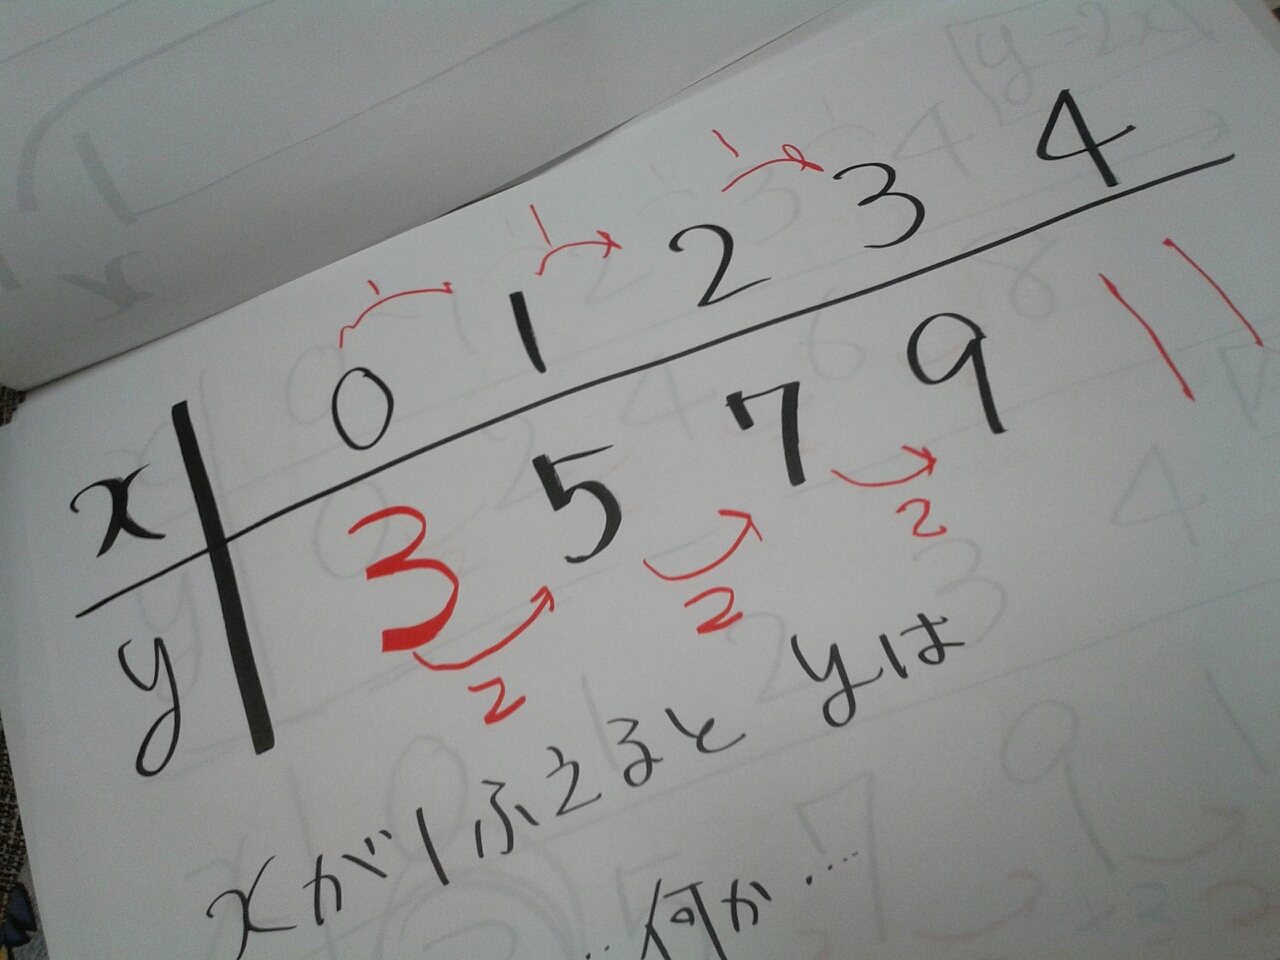 1 1 1
x 0 1 2 3 4
y 3 5 7 9 11
2 2 2
xが1ふえるとyは
...何か....